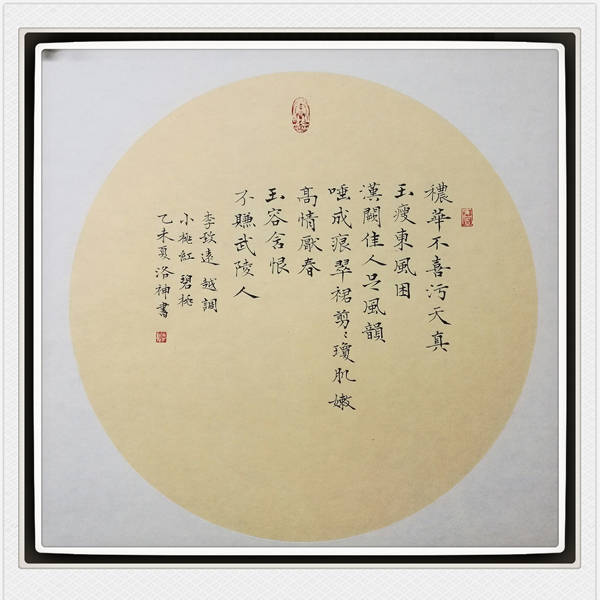 穠華不喜污天真
玉瘦東風困
漢闕佳人足風韻
唾成痕翠裙剪〻瓊肌嫩
高情厭春
玉容含恨
不賺武陵人
李致遠 越調
小桃紅 碧桃
乙未夏洛神書